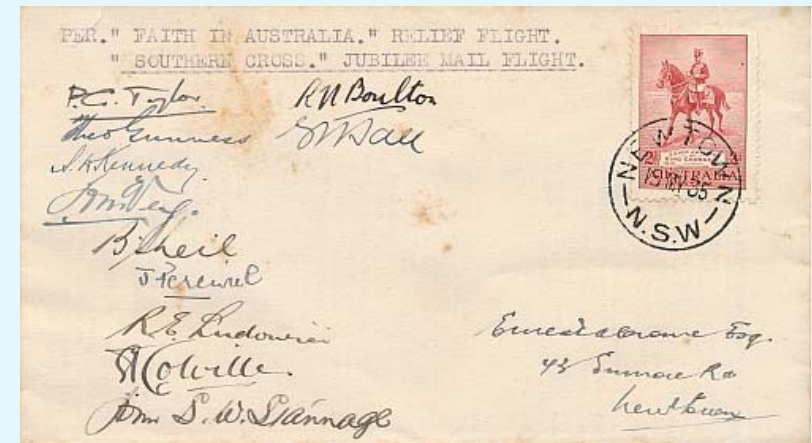 PER." FAITH IN AUSTRALIA." RELIEF FLIGHT.
" SOUTHERN CROSS." JUBILEE MAIL FLIGHT.
P.G. Taylor. R N Boulton
Theo Gunness
S.H. Kennedy
B. Sheil
R.E. Ludowici
A Colville.
John S. W. Stannage
2 2
AUSTRALIA
NEWTOWN
19 MY 35
N.S.W
Esq.
43 Enmore Rd
Newtown